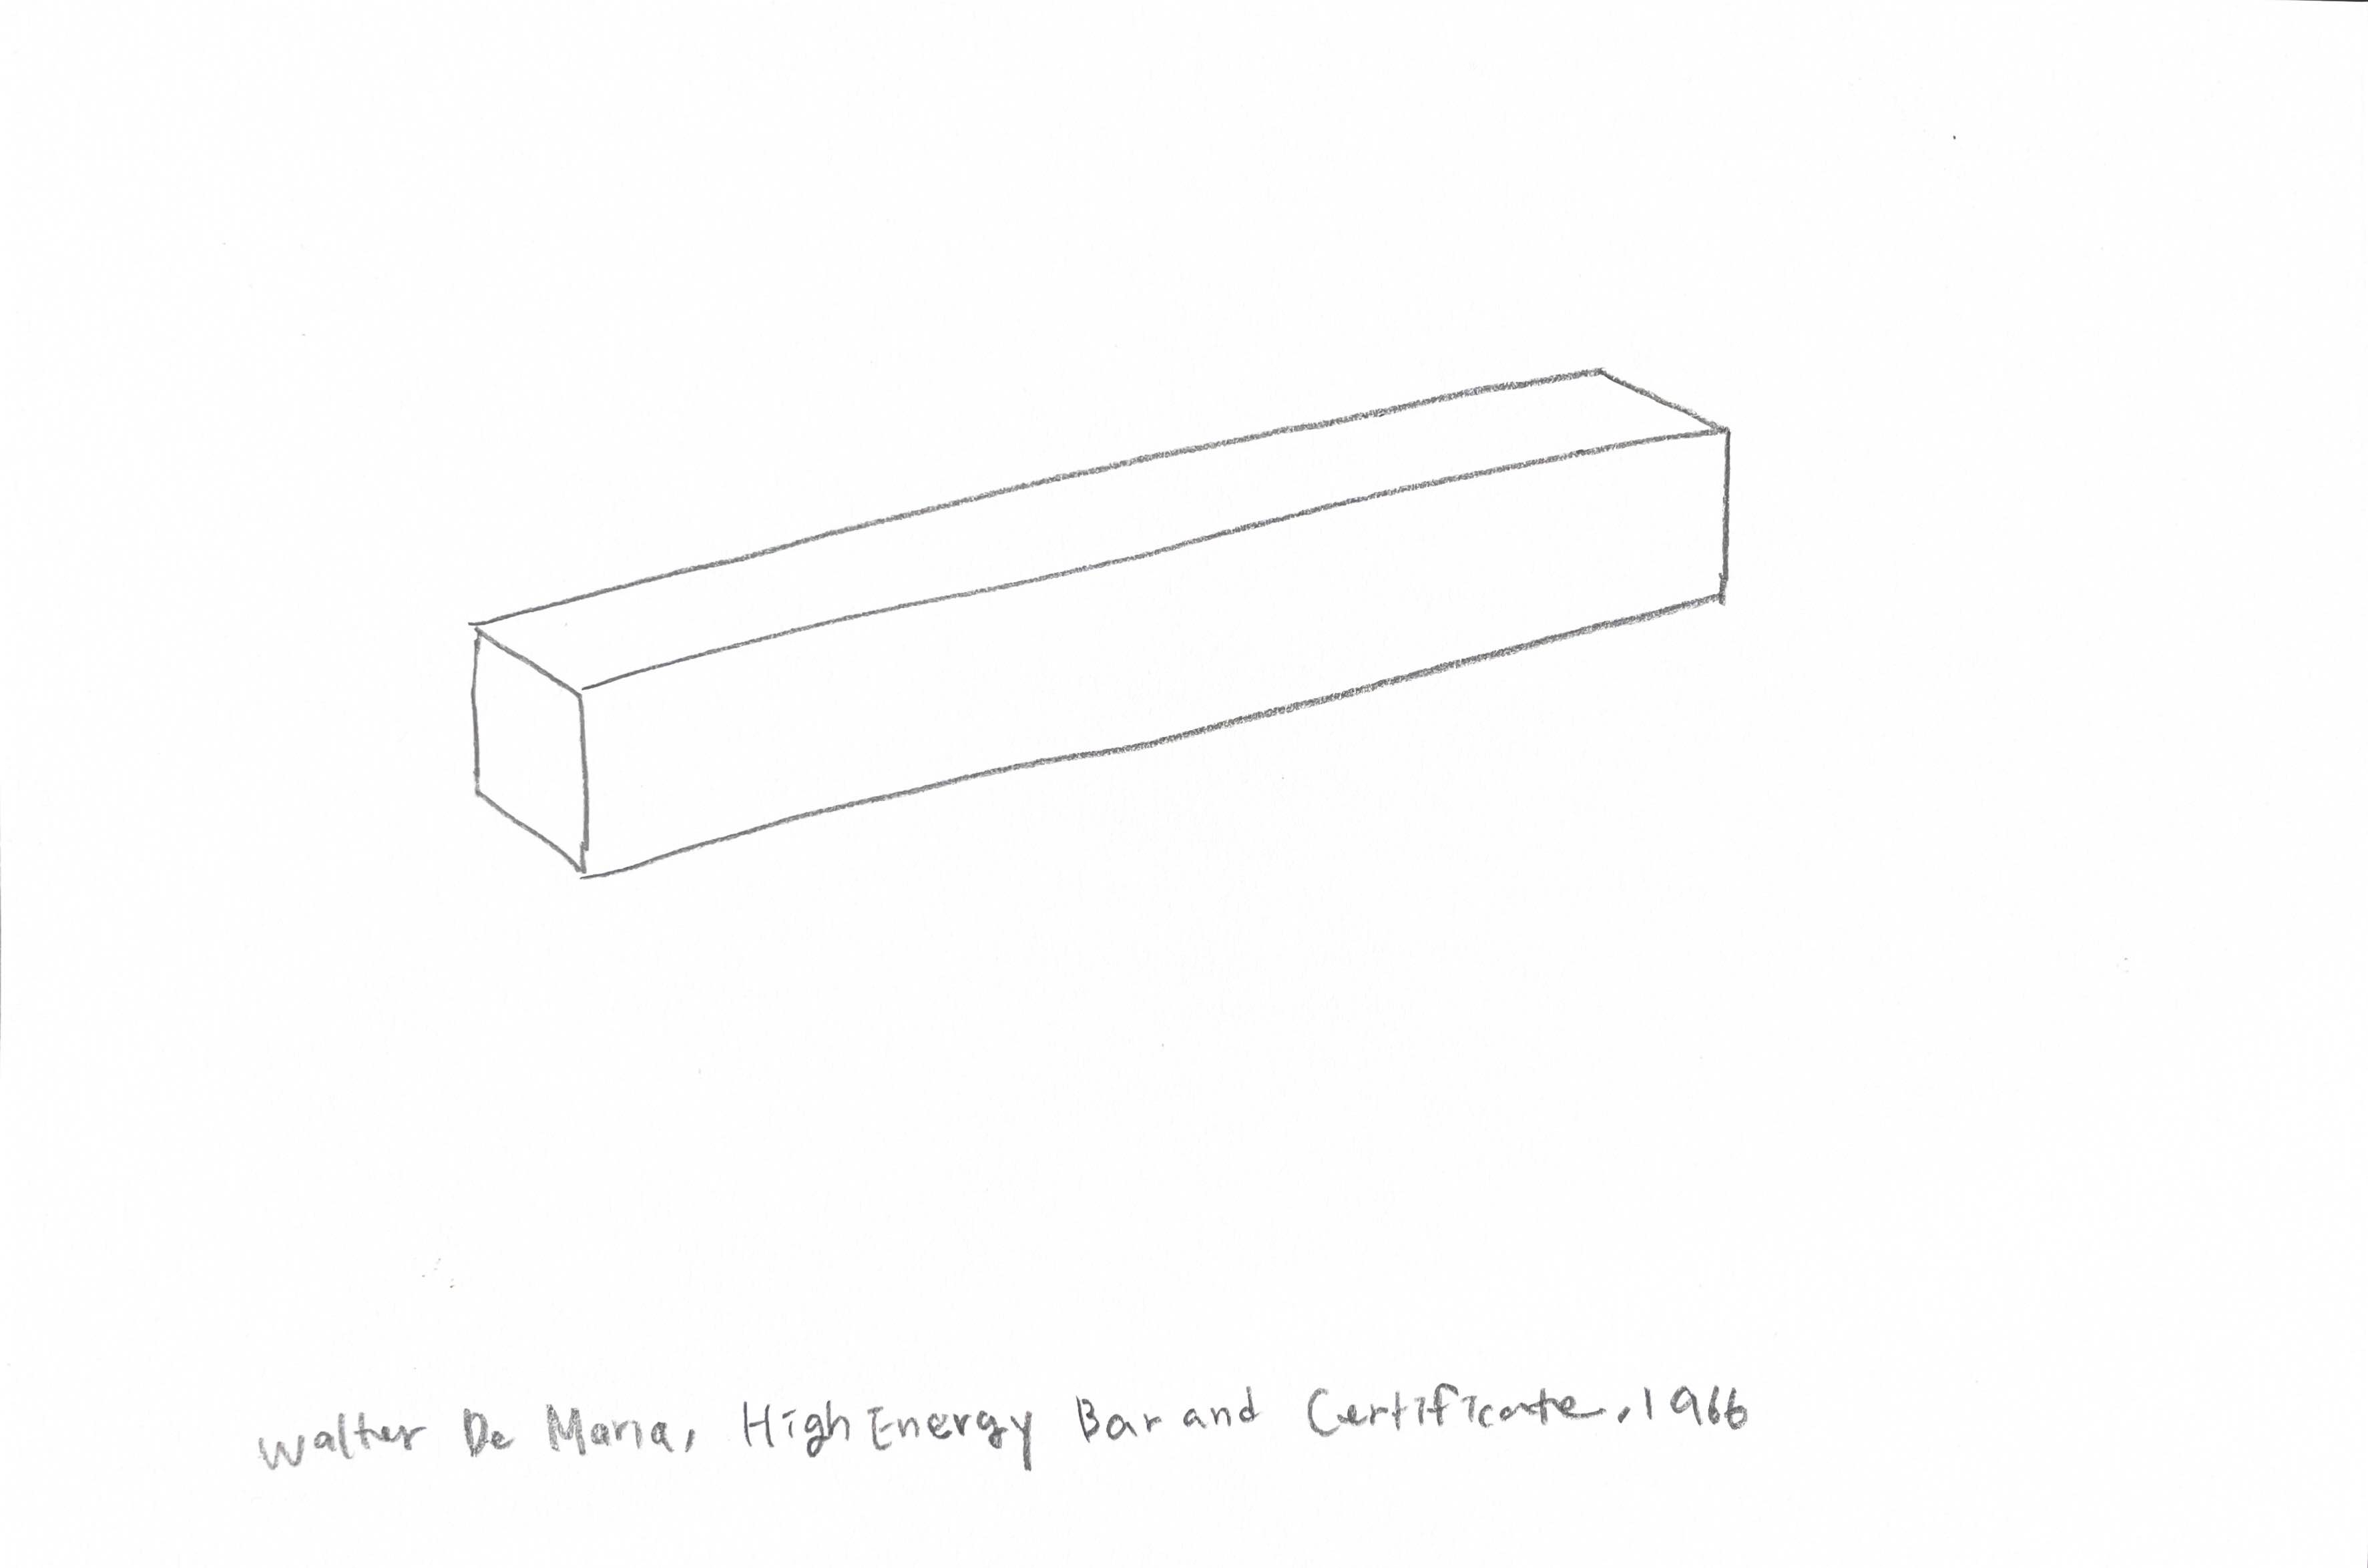 Walter De Maria, High Energy Bar and Certificate, 1966